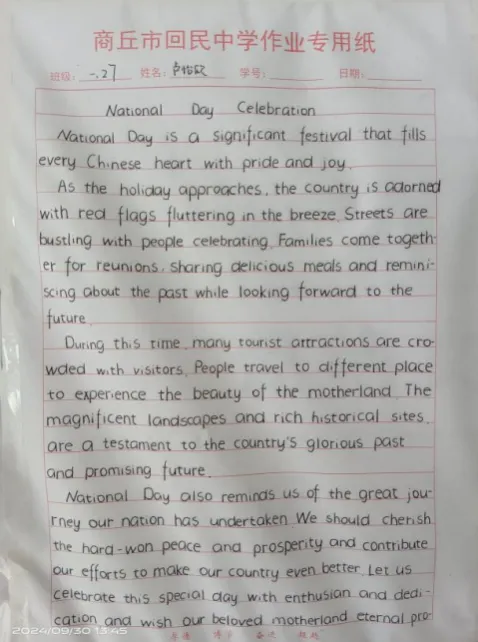 商丘市回民中学作业专用纸
班级: 一.27 姓名: 卢 学号: 日期:
National Day Celebration
National Day is a significant festival that fills
every Chinese heart with pride and joy.
As the holiday approaches, the country is adorned
with red flags fluttering in the breeze. Streets are
bustling with people celebrating. Families come togeth-
er for reunions, sharing delicious meals and remini-
scing about the past while looking forward to the
future.
During this time, many tourist attractions are cro-
wded with visitors. People travel to different place
to experience the beauty of the motherland. The
magnificent landscapes and rich historical sites.
are a testament to the country's glorious past
and promising future.
National Day also reminds us of the great jou-
rney our nation has undertaken We should cherish
the hard-won peace and prosperity and contribute
our efforts to make our country even better. Let us
celebrate this special day with enthusian and dedi-
cation and wish our beloved motherland eternal pro-
2024/09/30 13:45